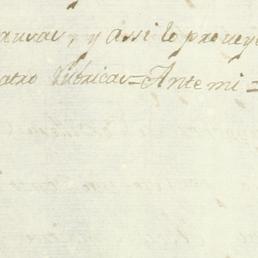 ausas, y assi lo proveye
atro Rubricas = Ante mi =